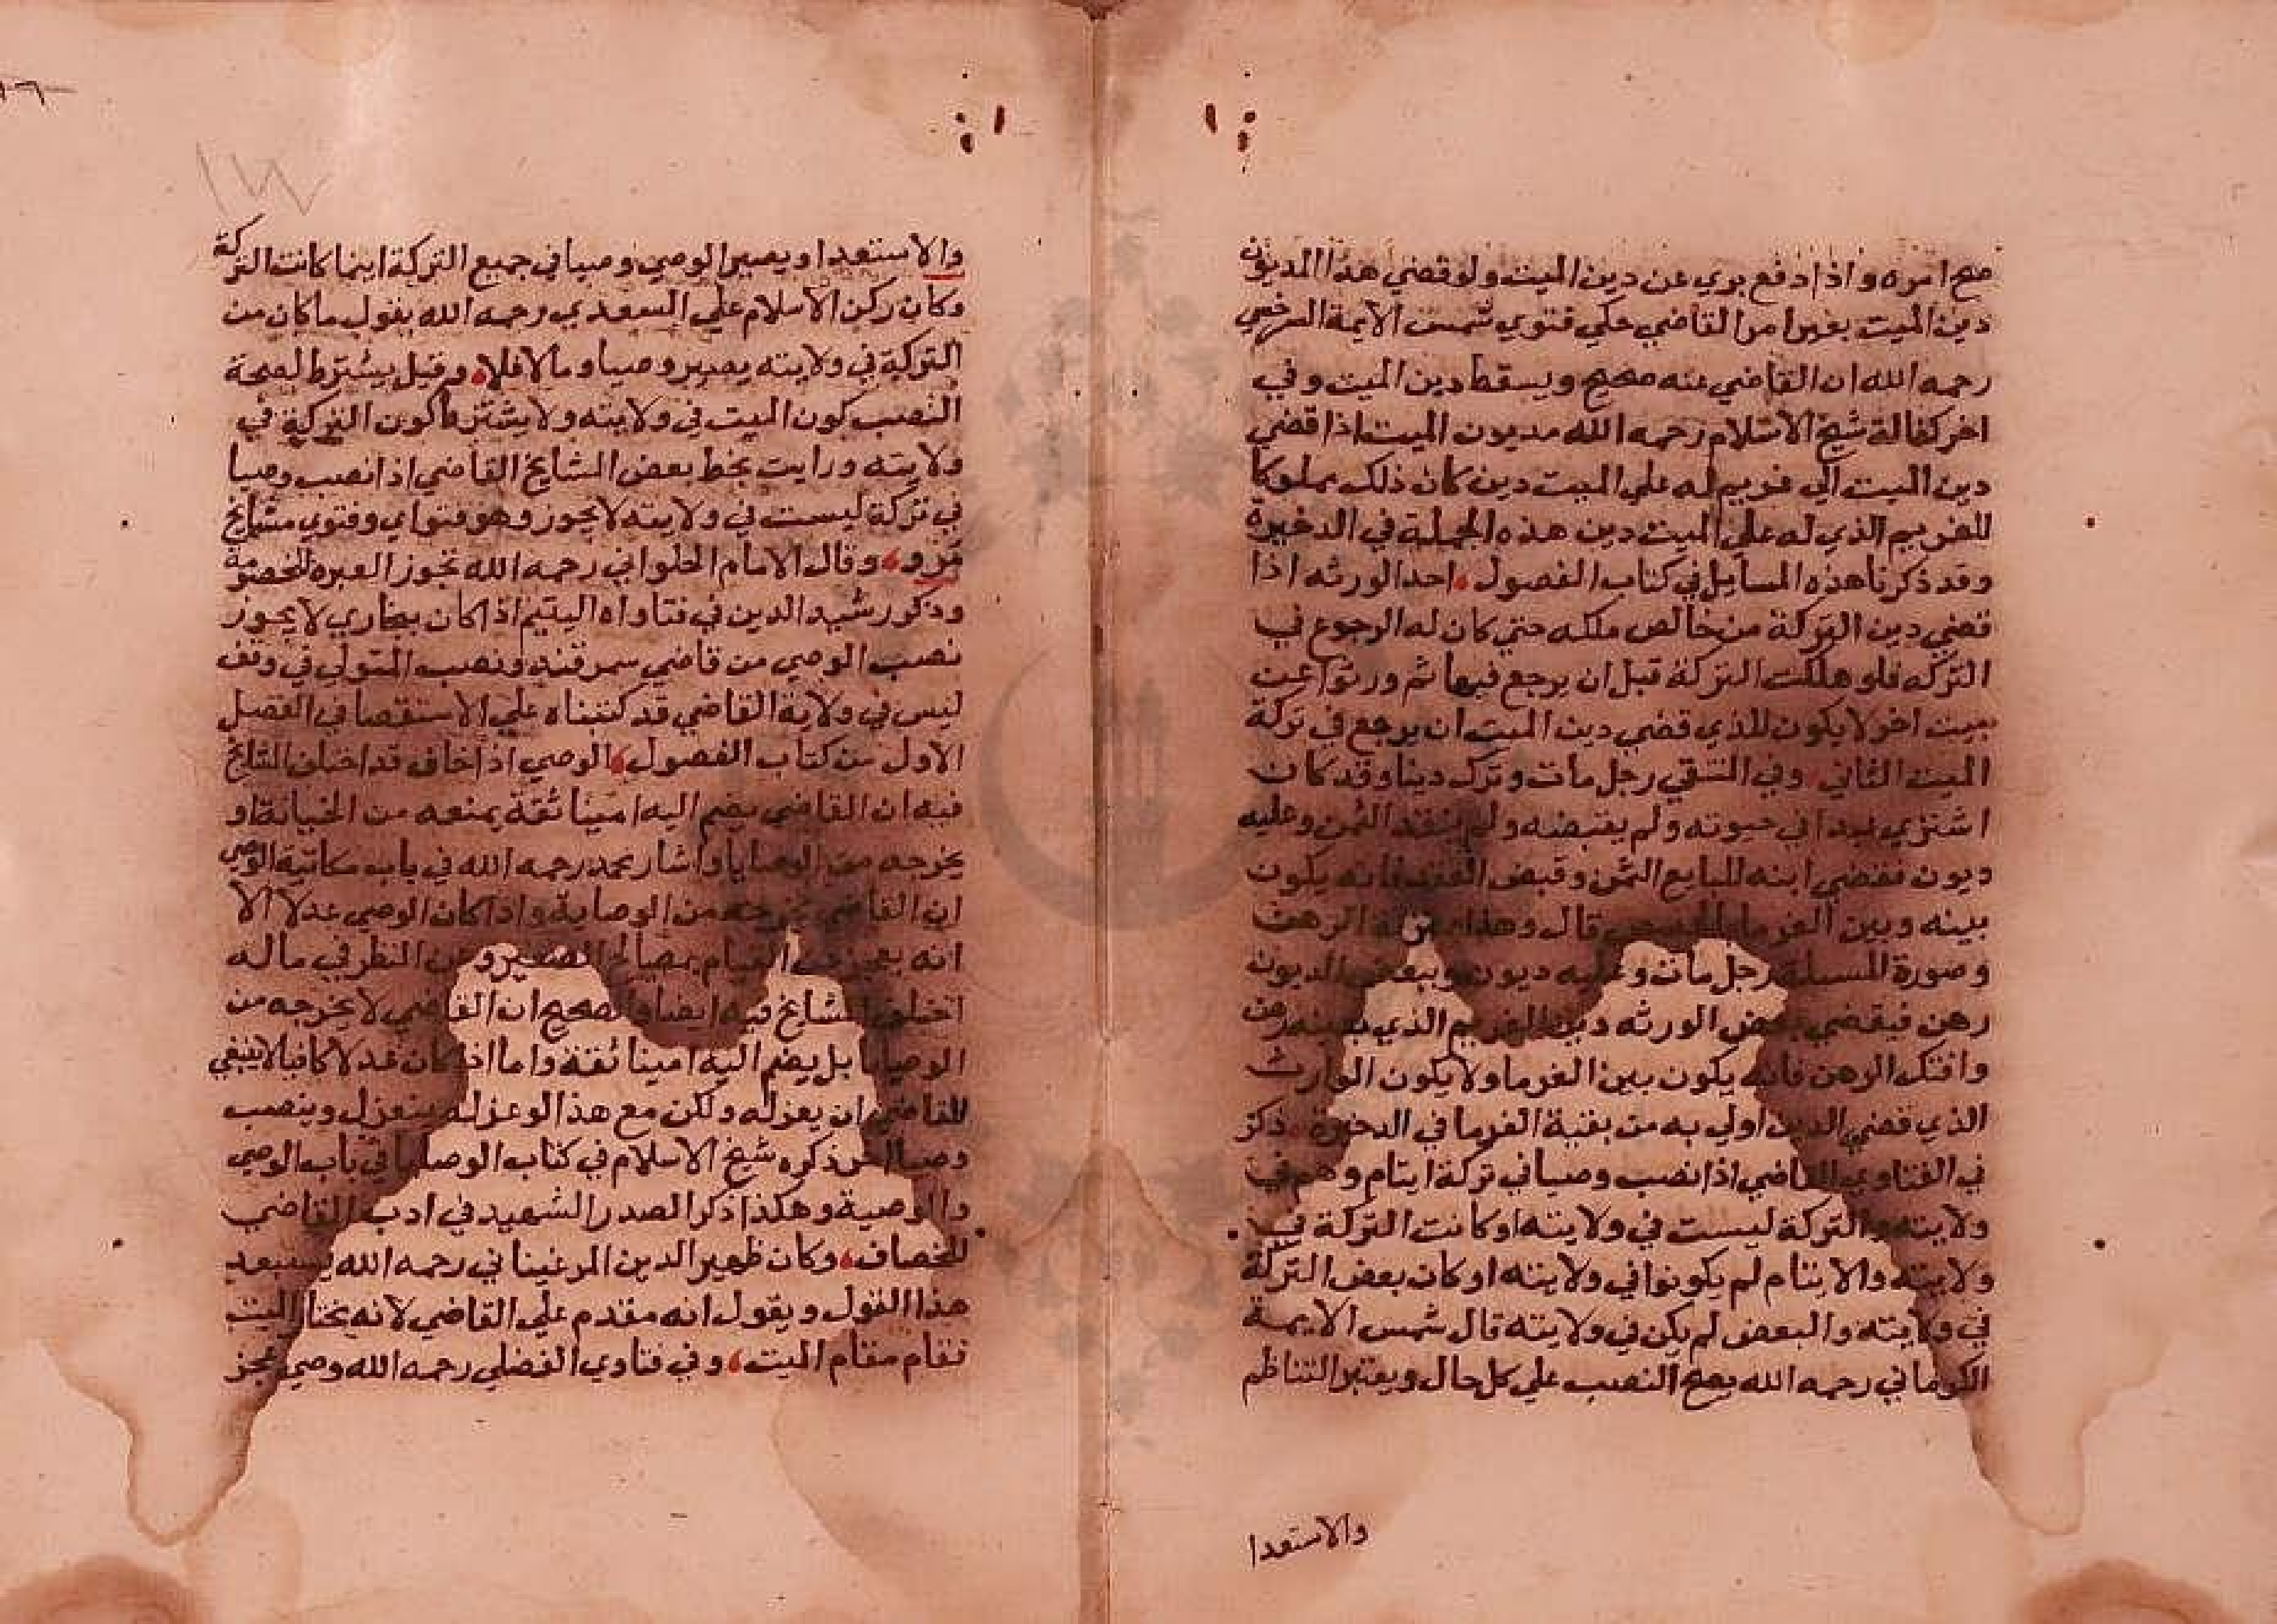 صح امره واذا دفع بري عن دين الميت ولو قضي هذا المديون
دين الميت بغير امر القاضي حكي فتوي شمس الايمة السرخسي
رحمه الله ان القاضي عنه صحيح ويسقط دين الميت وفي
اخر كفالة شيخ الاسلام رحمه الله مديون الميت اذا قضي
دين الميت الي غريم له علي الميت دين كان ذلك مملوكا
للغريم الذي له علي الميت دين هذه الجملة في الذخيرة
وقد ذكرنا هذه المسايل في كتاب الفصول احد الورثه اذا
قضي دين التركة من خالص ملكه حتي كان له الرجوع في
التركه فلو هلكت التركة قبل ان يرجع فيها ثم ورثوا عن
ميت اخر لا يكون للذي قضي دين الميت ان يرجع في تركة
الميت الثاني وفي المنتقي رجل مات وترك دينا وقد كان
اشتري عبدا في حيوته ولم يقبضه ولم ينقد الثمن وعليه
ديون فقضي ابنه للبايع الثمن وقبض العبد فانه يكون
بينه وبين الغرما بالحصص قال وهذا بمنزلة الرهن
وصورة المسيلة رجل مات وعليه ديون وببعض الديون
رهن فيقضي بعض الورثه دين الغريم الذي بيده رهن
وافتك الرهن فانه يكون بين الغرما ولا يكون الوارث
الذي قضي الدين اولي به من بقية الغرما في الدخيرة ذكر
في الفتاوي القاضي اذا نصب وصيا في تركة ايتام وهم في
ولايته والتركة ليست في ولايته او كانت التركة في
ولايته والايتام لم يكونوا في ولايته او كان بعض التركة
في ولايته والبعض لم يكن في ولايته قال شمس الايمة
الكرماني رحمه الله يصح النصب علي كل حال ويعتبر التناظم
والاستعدا
والاستعدا ويصير الوصي وصيا في جميع التركة اينما كانت التركة
وكان ركن الاسلام علي السعدي رحمه الله يقول ما كان من
التركة في ولايته يصير وصيا وما لا فلا وقيل يشترط لصحة
النصب كون الميت في ولايته ولا يشترط كون التركة في
ولايته ورايت بخط بعض المشايخ القاضي اذا نصب وصيا
في تركة ليست في ولايته لا يجوز وهو فتواي وفتوي مشايخ
مرو وقال الامام الحلواني رحمه الله تجوز العبره للخصومة
وذكر رشيد الدين في فتاواه اليتيم اذا كان ببخاري لا يجوز
نصب الوصي من قاضي سمرقند ونصب المتولي في وقف
ليس في ولاية القاضي قد كتبناه علي الاستقصا في الفصل
الاول من كتاب الفصول الوصي اذا خاف قد اختلف المشايخ
فيه ان القاضي يضم اليه امينا ثقة يمنعه من الخيانة او
يخرجه من الوصايا واشار محمد رحمه الله في باب مكاتبة الوصي
ان القاضي يخرجه من الوصاية واذا كان الوصي عدلا الا
انه يعجز عن القيام بمصالح الصغير وعن النظر في ماله
اختلف المشايخ فيه ايضا والصحيح ان القاضي لا يخرجه من
الوصايا بل يضم اليه امينا ثقة واما اذا كان عدلا كافيا لا ينبغي
للقاضي ان يعزله ولكن مع هذا لو عزله ينعزل وينصب
وصيا اخر ذكره شيخ الاسلام في كتاب الوصايا في باب الوصي
والوصية وهكذا ذكر الصدر الشهيد في ادب القاضي
للخصاف وكان ظهير الدين المرغيناني رحمه الله يستبعد
هذا القول ويقول انه مقدم علي القاضي لانه مختار الميت
فقام مقام الميت وفي فتاوي الفضلي رحمه الله وصي عجز